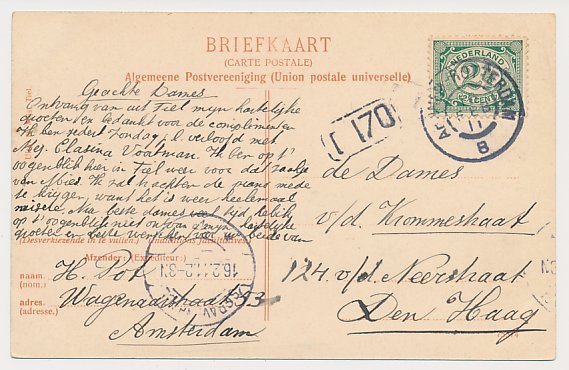 BRIEFKAART
(CARTE POSTALE)
Algemeene Postvereeniging (Union postale universelle)
NEDERLAND
2½
CENT
ROTTERDAM
8
170
Geachte Dames
Ontvang van uit Tiel mijn hartelijke
groeten en bedankt voor de complimenten
Ik ben sedert Zondag j.l. verloofd met
Mej. Clasina Voatman. Ik ben op 't
oogenblik hier in Tiel weer voor dat zaakje
van Ik zal trachten de piano mede
te krijgen, want het is weer heelemaal
misère. Ma beste dames veel tijd heb ik
op 't oogenblik niet ontvang mijn hartelijke
groeten en beste wenschen voor u beide van
(Desverkiezende in te vullen.) (Indications facultatives.)
Afzender: (Expéditeur:)
naam. H. Pot
(nom.)
adres. Wagenaarstraat 93
(adresse.)
Amsterdam
16.2.11 2-8N
's-GRAV
de Dames
v/d. Krommestraat
124 v/d. Neerstraat
Den Haag